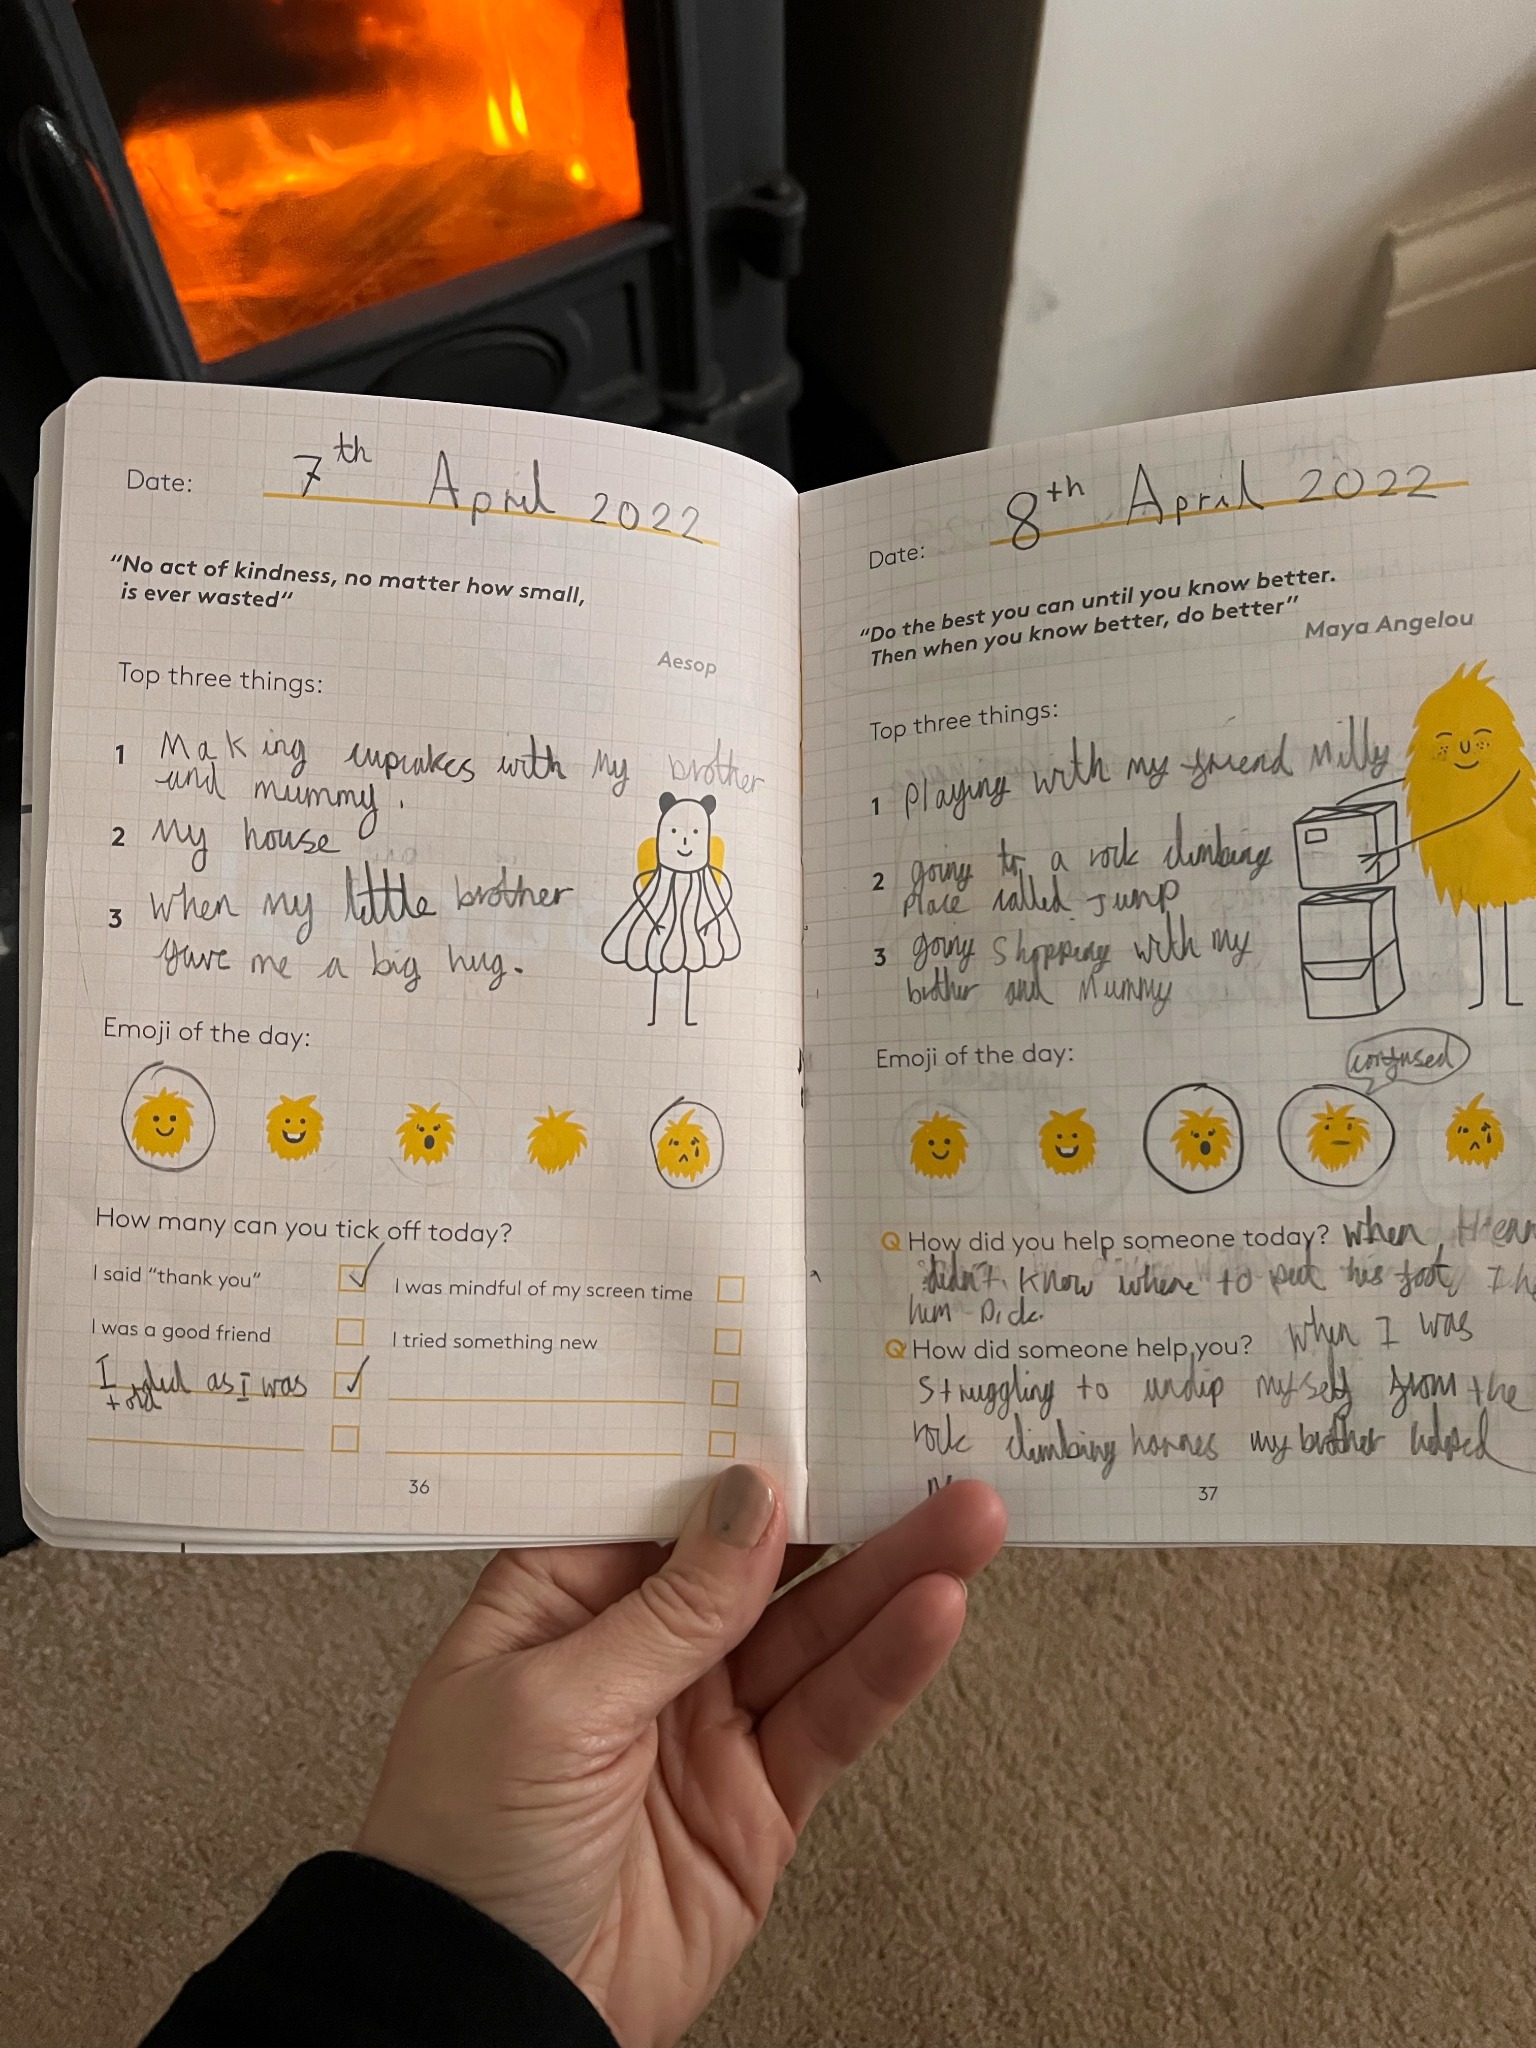 Date: 7th April 2022
"No act of kindness, no matter how small,
is ever wasted"
Aesop
Top three things:
1 Making cupcakes with my brother
and mummy.
2 My house
3 when my little brother
gave me a big hug.
Emoji of the day:
How many can you tick off today?
I said "thank you"
I was mindful of my screen time
I was a good friend
I tried something new
I did as I was
told
36
Date: 8th April 2022
"Do the best you can until you know better.
Then when you know better, do better"
Maya Angelou
Top three things:
1 Playing with my friend Milly
2 going to a rock climbing
place called Jump
3 going shopping with my
brother and Mummy
Emoji of the day:
confused
Q How did you help someone today? when
didn't know where to put his foot, I
him
Q How did someone help you? when I was
struggling to unclip myself from the
rock climbing harnes my brother helped
37